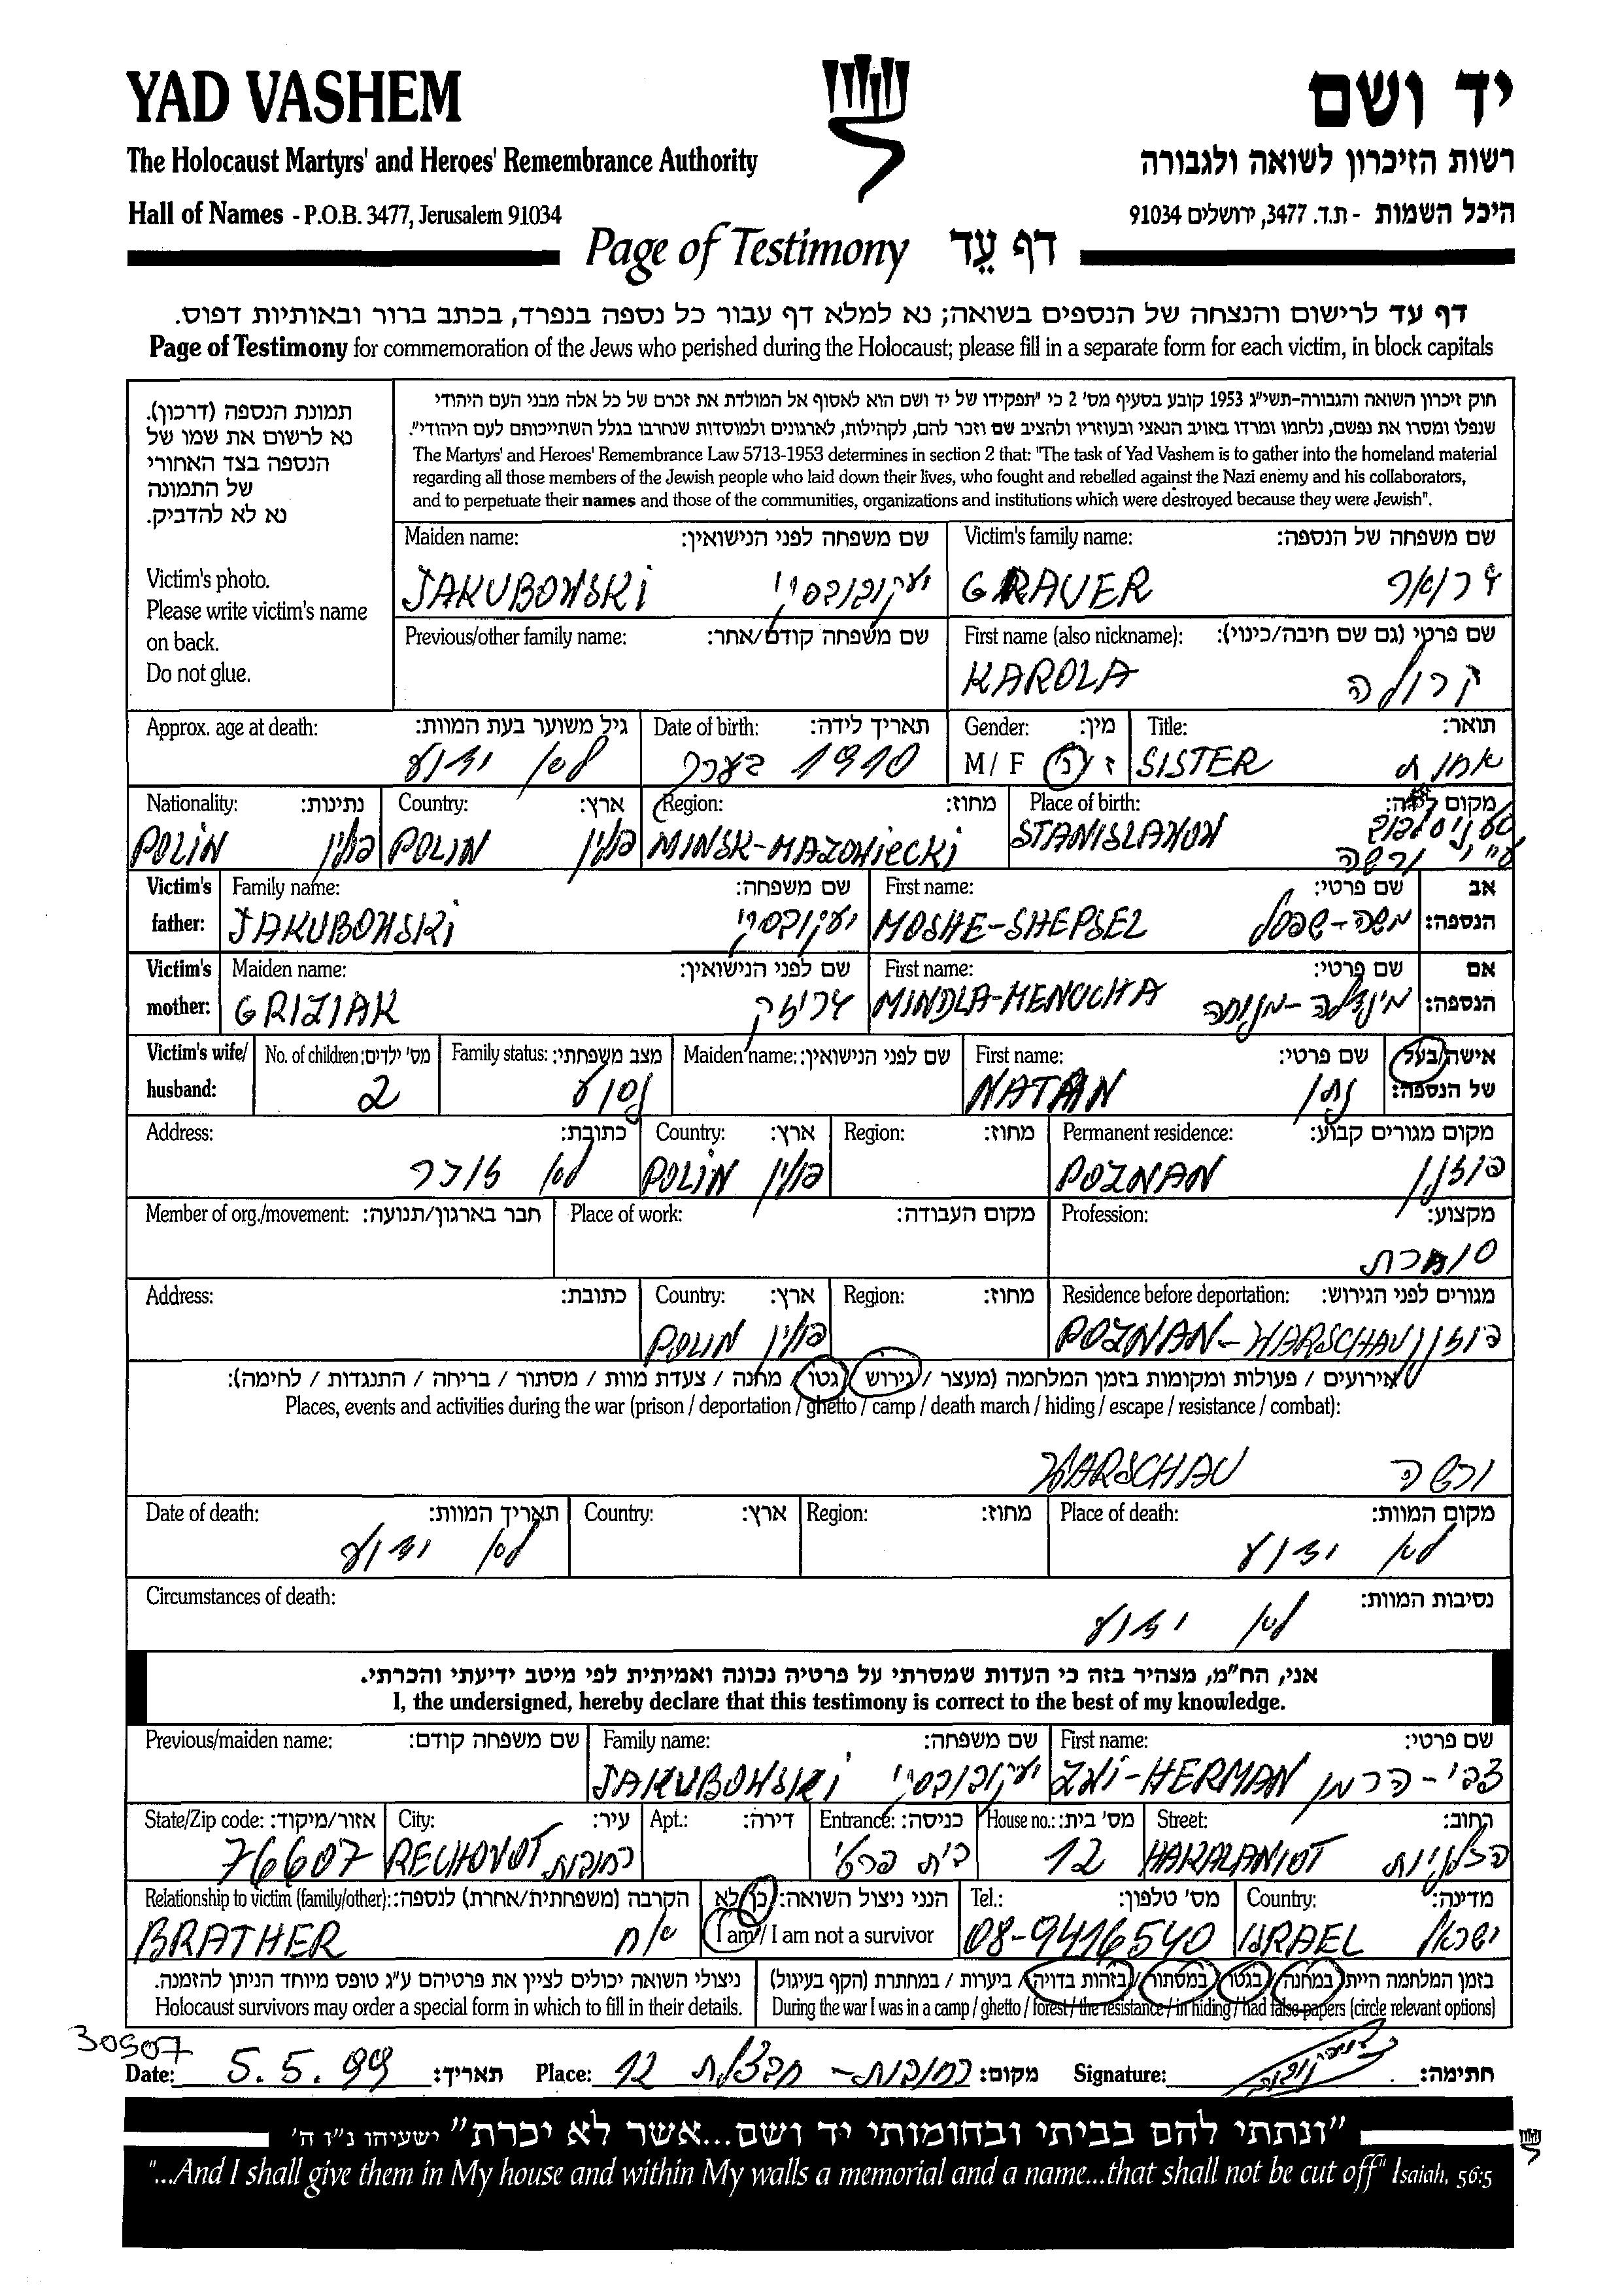 YAD VASHEM
יד ושם
The Holocaust Martyrs' and Heroes' Remembrance Authority
רשות הזיכרון לשואה ולגבורה
Hall of Names - P.O.B. 3477, Jerusalem 91034
היכל השמות - ת.ד. 3477, ירושלים 91034
Page of Testimony דף עֵד
דף עד לרישום והנצחה של הנספים בשואה; נא למלא דף עבור כל נספה בנפרד, בכתב ברור ובאותיות דפוס.
Page of Testimony for commemoration of the Jews who perished during the Holocaust; please fill in a separate form for each victim, in block capitals
תמונת הנספה (דרכון).
נא לרשום את שמו של
הנספה בצד האחורי
של התמונה
נא לא להדביק.
Victim's photo.
Please write victim's name
on back.
Do not glue.
חוק זיכרון השואה והגבורה-תשי"ג 1953 קובע בסעיף מס' 2 כי "תפקידו של יד ושם הוא לאסוף אל המולדת את זכרם של כל אלה מבני העם היהודי
שנפלו ומסרו את נפשם, נלחמו ומרדו באויב הנאצי ובעוזריו ולהציב שם וזכר להם, לקהילות, לארגונים ולמוסדות שנחרבו בגלל השתייכותם לעם היהודי".
The Martyrs' and Heroes' Remembrance Law 5713-1953 determines in section 2 that: "The task of Yad Vashem is to gather into the homeland material
regarding all those members of the Jewish people who laid down their lives, who fought and rebelled against the Nazi enemy and his collaborators,
and to perpetuate their names and those of the communities, organizations and institutions which were destroyed because they were Jewish".
Maiden name: שם משפחה לפני הנישואין:
JAKUBOWSKI יעקובובסקי
Victim's family name: שם משפחה של הנספה:
GRAUER גרואר
Previous/other family name: שם משפחה קודם/אחר:
First name (also nickname): שם פרטי (גם שם חיבה/כינוי):
KAROLA קרולה
Approx. age at death: גיל משוער בעת המוות:
לא ידוע
Date of birth: תאריך לידה:
1910 בערך
Gender: מין:
M / F ז / נ
Title: תואר:
SISTER אחות
Nationality: נתינות:
POLIN פולין
Country: ארץ:
POLIN פולין
Region: מחוז:
MINSK-MAZOWIECKI
Place of birth: מקום לידה:
STANISLAWOW סטניסלבוב
ע"י ורשה
Victim's father: אב הנספה:
Family name: שם משפחה:
JAKUBOWSKI יעקובובסקי
First name: שם פרטי:
MOSHE-SHEPSEL משה-שפסל
Victim's mother: אם הנספה:
Maiden name: שם לפני הנישואין:
GRIZIAK גריזק
First name: שם פרטי:
MINDLA-MENUCHA מינדלה-מנוחה
Victim's wife/ husband: אישה/בעל של הנספה:
No. of children: מס' ילדים:
2
Family status: מצב משפחתי:
נשוי
Maiden name: שם לפני הנישואין:
First name: שם פרטי:
NATAN נתן
Address: כתובת:
לא זוכר
Country: ארץ:
POLIN פולין
Region: מחוז:
Permanent residence: מקום מגורים קבוע:
POZNAN פוזנן
Member of org./movement: חבר בארגון/תנועה:
Place of work: מקום העבודה:
Profession: מקצוע:
סוחרת
Address: כתובת:
Country: ארץ:
POLIN פולין
Region: מחוז:
Residence before deportation: מגורים לפני הגירוש:
POZNAN-WARSCHAU פוזנן
אירועים / פעולות ומקומות בזמן המלחמה (מעצר / גירוש / גטו / מחנה / צעדת מוות / מסתור / בריחה / התנגדות / לחימה):
Places, events and activities during the war (prison / deportation / ghetto / camp / death march / hiding / escape / resistance / combat):
WARSCHAU ורשה
Date of death: תאריך המוות:
לא ידוע
Country: ארץ:
Region: מחוז:
Place of death: מקום המוות:
לא ידוע
Circumstances of death: נסיבות המוות:
לא ידוע
אני, הח"מ, מצהיר בזה כי העדות שמסרתי על פרטיה נכונה ואמיתית לפי מיטב ידיעתי והכרתי.
I, the undersigned, hereby declare that this testimony is correct to the best of my knowledge.
Previous/maiden name: שם משפחה קודם:
Family name: שם משפחה:
JAKUBOWSKI יעקובובסקי
First name: שם פרטי:
ZWI-HERMAN צבי-הרמן
State/Zip code: אזור/מיקוד:
76607
City: עיר:
RECHOVOT רחובות
Apt.: דירה:
Entrance: כניסה:
בית פרטי
House no.: מס' בית:
12
Street: רחוב:
HAKALANIOT הכלניות
Relationship to victim (family/other): הקרבה (משפחתית/אחרת) לנספה:
BRATHER אח
הנני ניצול השואה: כן / לא
I am / I am not a survivor
Tel.: מס' טלפון:
08-9416540
Country: מדינה:
ISRAEL ישראל
ניצולי השואה יכולים לציין את פרטיהם ע"ג טופס מיוחד הניתן להזמנה.
Holocaust survivors may order a special form in which to fill in their details.
בזמן המלחמה הייתי במחנה / בגטו / במסתור / בזהות בדויה / ביערות / במחתרת (הקף בעיגול)
During the war I was in a camp / ghetto / forest / the resistance / in hiding / had false papers (circle relevant options)
30507
Date: 5.5.99 תאריך: Place: רחובות - חבצלת 12 מקום: Signature: חתימה:
"ונתתי להם בביתי ובחומותי יד ושם...אשר לא יכרת" ישעיהו נ"ו ה'
"...And I shall give them in My house and within My walls a memorial and a name...that shall not be cut off" Isaiah, 56:5